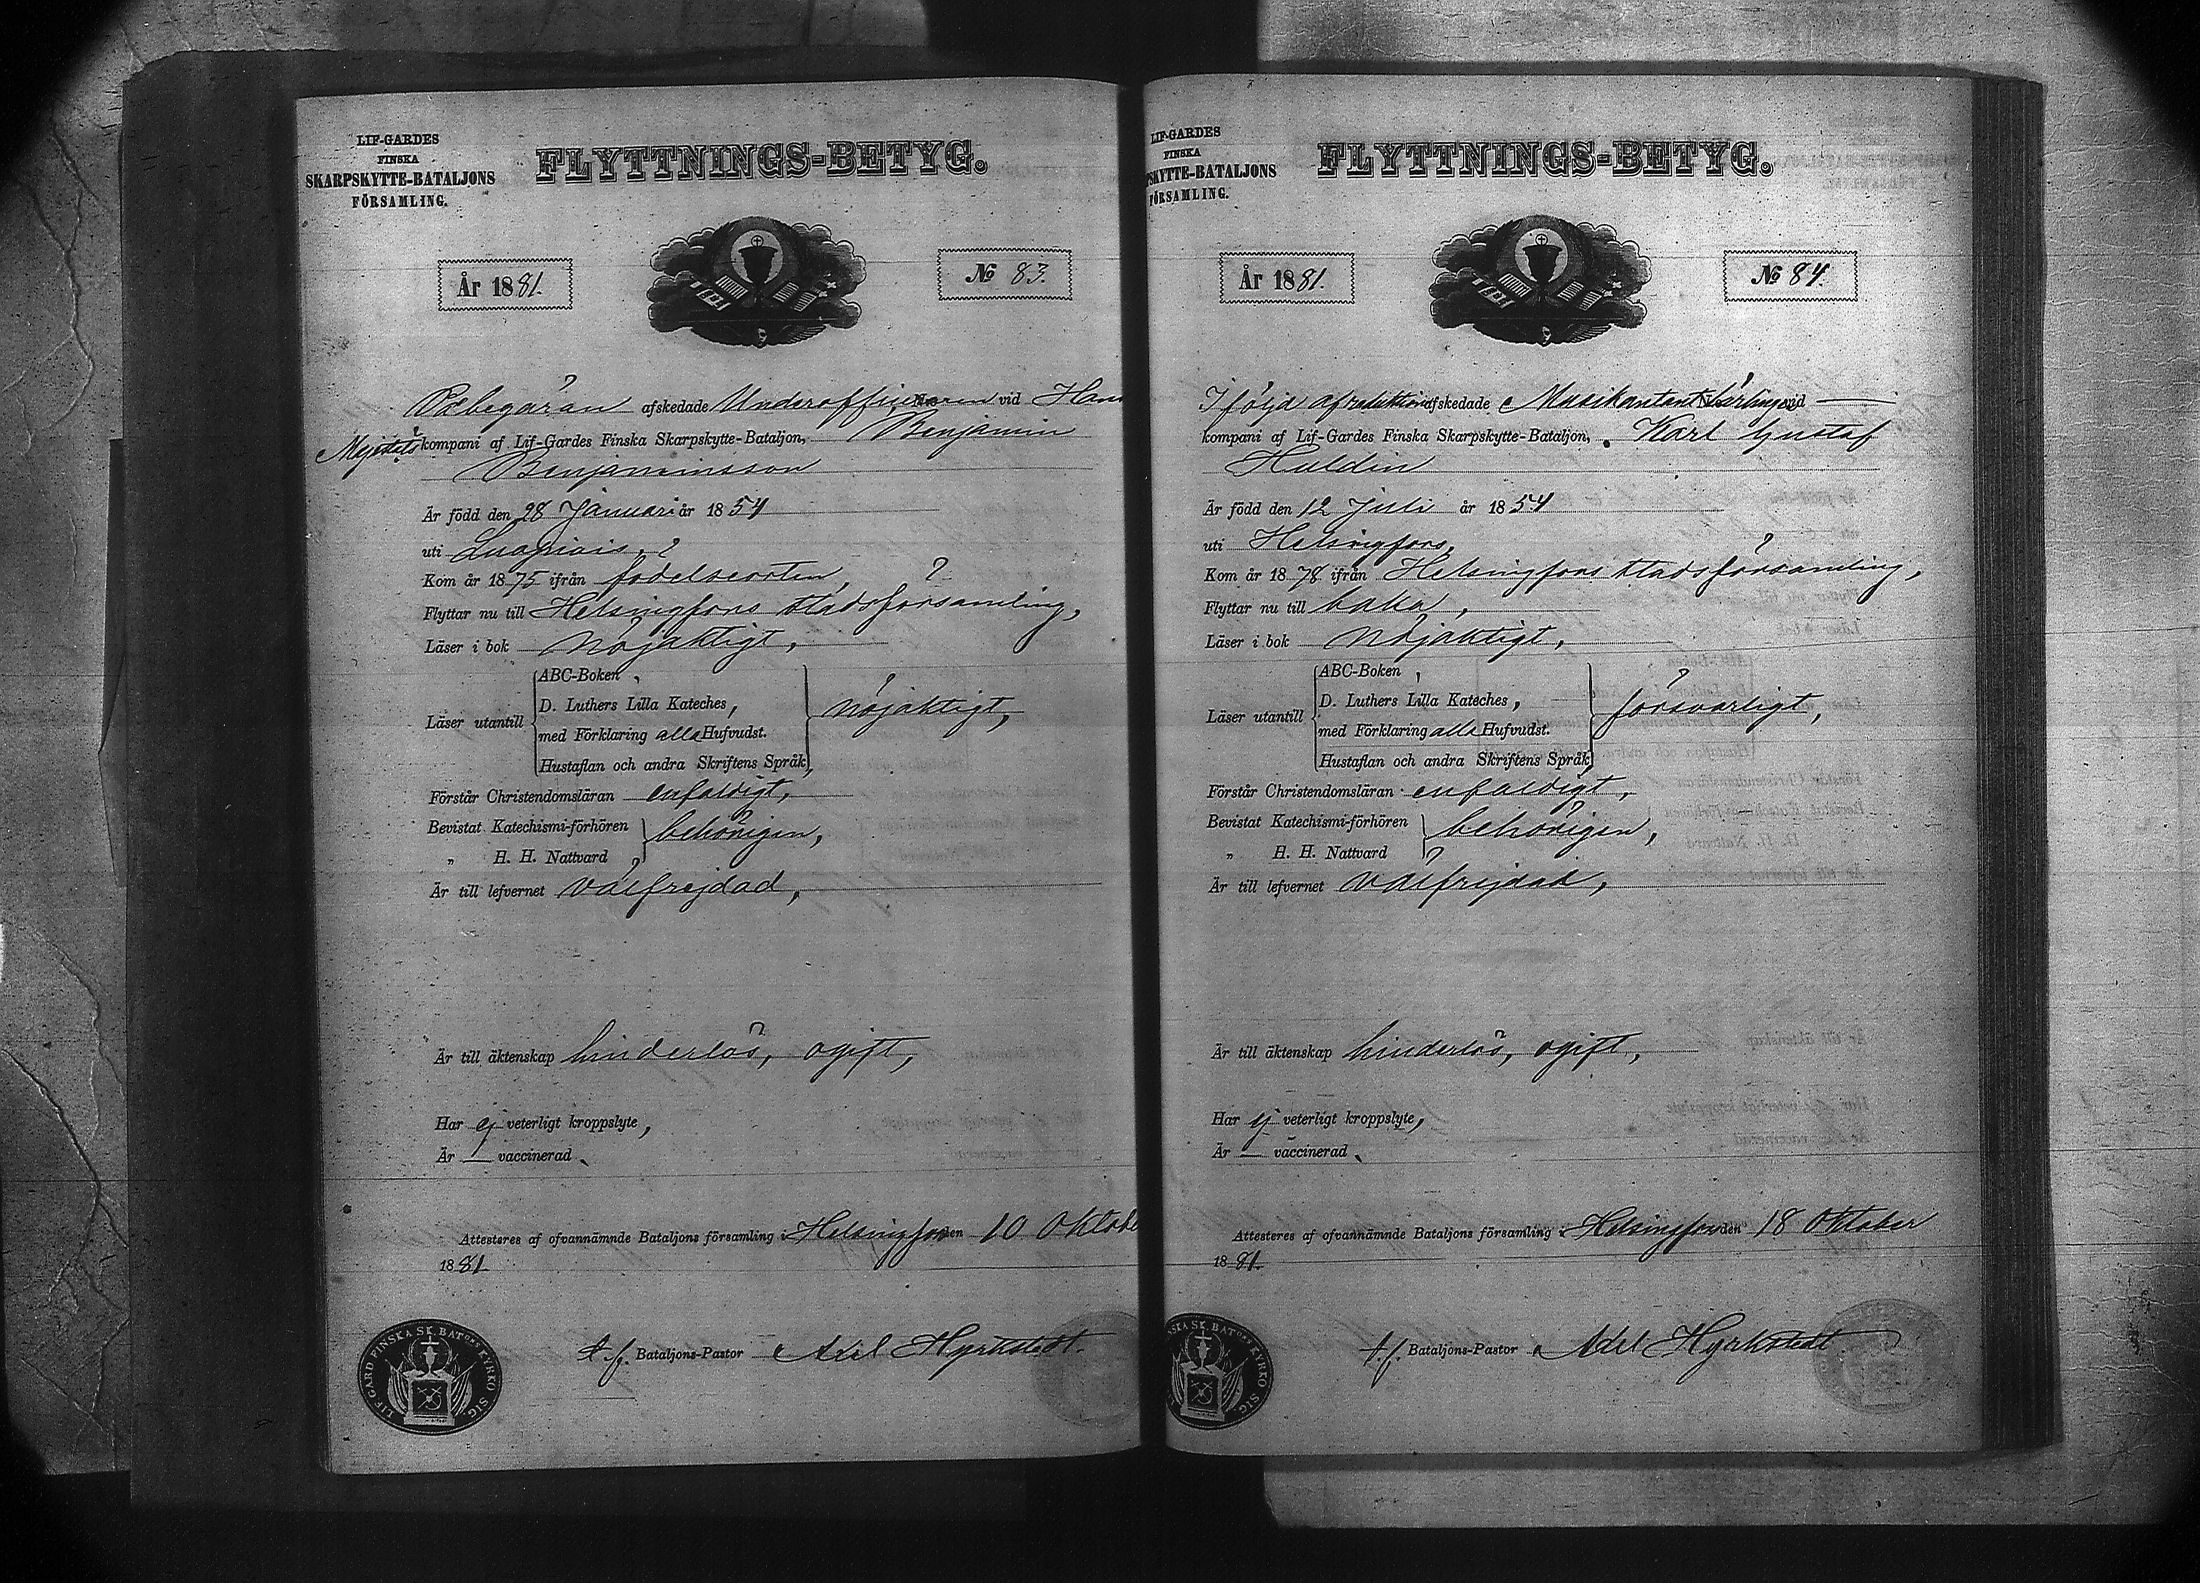 LIF-GARDES
FINSKA
SKARPSKYTTE-BATALJONS
FÖRSAMLING.
FLYTTNINGS-BETYG.
År 1881.
№ 83.
På begäran afskedade Underofficeren vid Hans
Majestäts kompani af Lif-Gardes Finska Skarpskytte-Bataljon, Benjamin
Benjaminsson
Är född den 28 Januari år 1854
uti
Kom år 1875 ifrån födelseorten,
Flyttar nu till Helsingfors stadsförsamling,
Läser i bok nöjaktigt,
Läser utantill
ABC-Boken,
D. Luthers Lilla Kateches,
med Förklaring alla Hufvudst.
Hustaflan och andra Skriftens Språk,
nöjaktigt,
Förstår Christendomsläran enfaldigt,
Bevistat Katechismi-förhören
„ H. H. Nattvard
behörigen,
Är till lefvernet välfrejdad,
Är till äktenskap hinderlös, ogift,
Har ej veterligt kroppslyte,
Är — vaccinerad.
Attesteres af ofvannämnde Bataljons församling i Helsingfors den 10 Oktobe
1881.
t. f. Bataljons-Pastor Axel Hyrkstedt.
LIF. GARD FINSKA SK. BATONS KYRKO SIG.
LIF-GARDES
FINSKA
PSKYTTE-BATALJONS
FÖRSAMLING.
FLYTTNINGS-BETYG.
År 1881.
№ 84.
I följd af reduktion afskedade Musikantlärling vid —
kompani af Lif-Gardes Finska Skarpskytte-Bataljon, Karl Gustaf
Huldin
Är född den 12 Juli år 1854
uti Helsingfors,
Kom år 1878 ifrån Helsingfors stadsförsamling,
Flyttar nu till baka,
Läser i bok nöjaktigt,
Läser utantill
ABC-Boken,
D. Luthers Lilla Kateches,
med Förklaring alla Hufvudst.
Hustaflan och andra Skriftens Språk,
försvarligt,
Förstår Christendomsläran enfaldigt,
Bevistat Katechismi-förhören
„ H. H. Nattvard
behörigen,
Är till lefvernet välfrejdad,
Är till äktenskap hinderlös, ogift,
Har ej veterligt kroppslyte,
Är — vaccinerad.
Attesteres af ofvannämnde Bataljons församling i Helsingfors den 18 Oktober
1881.
t. f. Bataljons-Pastor Axel Hyrkstedt.
NSKA SK. BATONS KYRKO SIG.